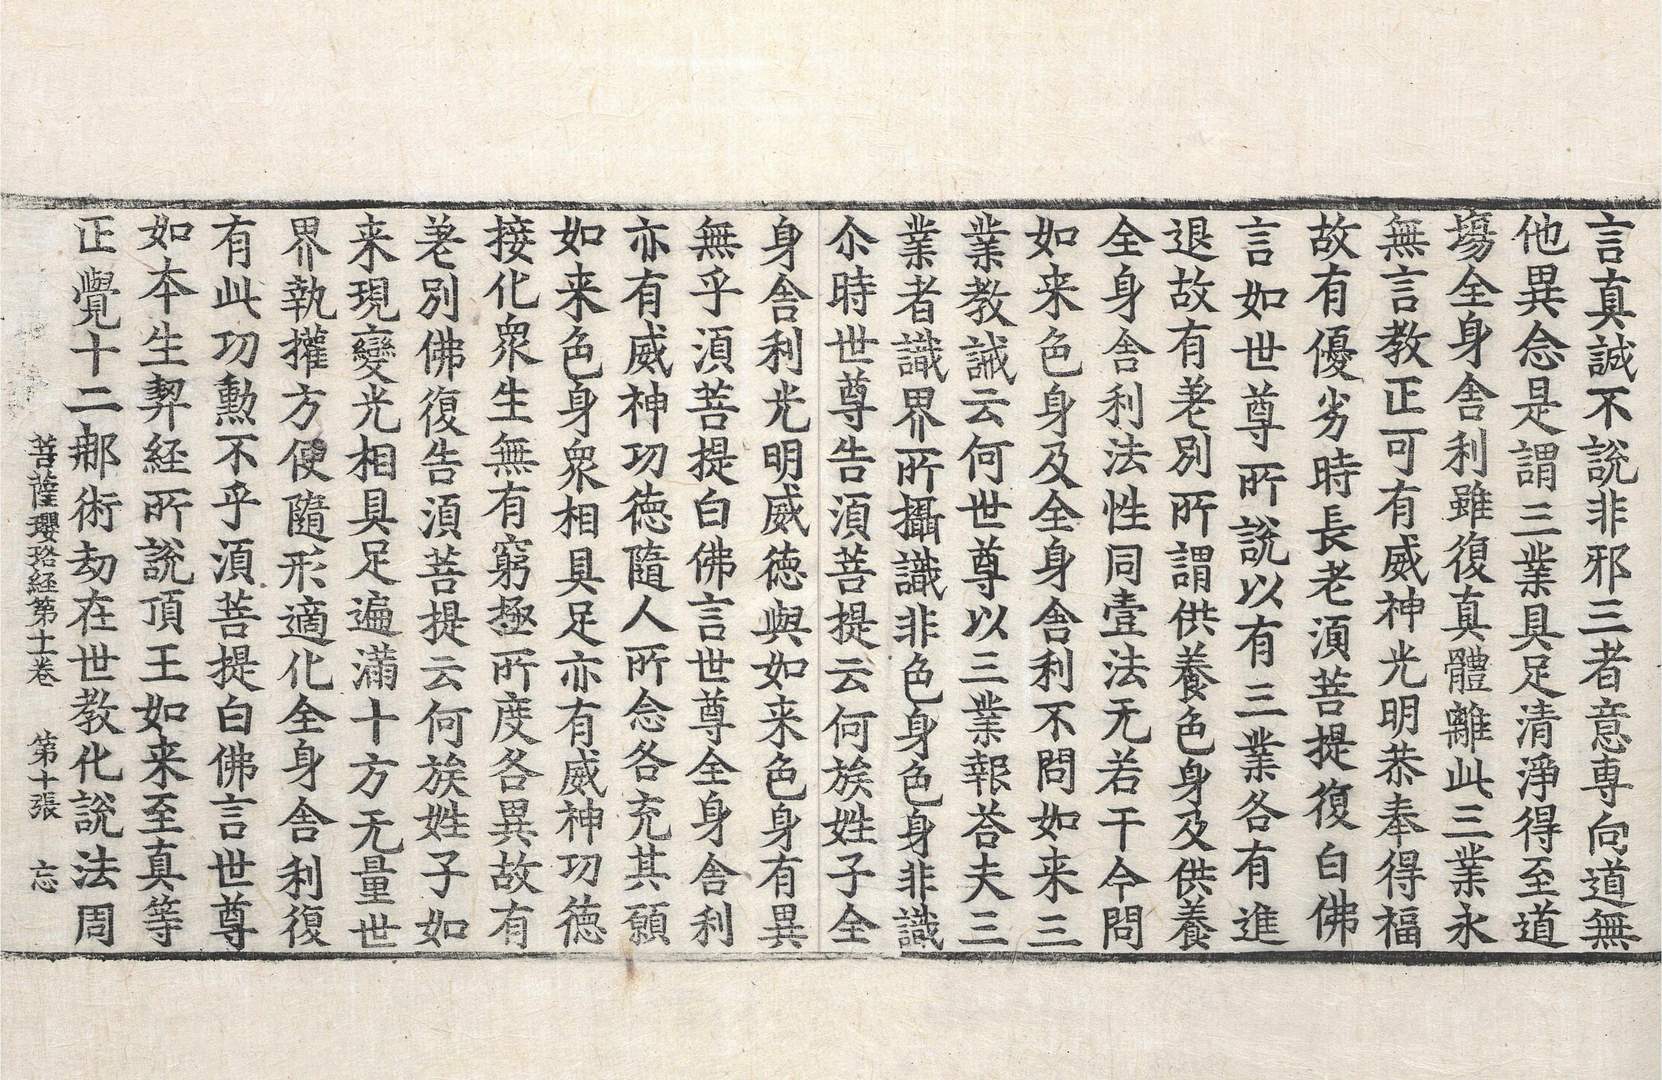 言真誠不說非邪三者意專向道無
他異念是謂三業具足清淨得至道
場全身舍利雖復真體離此三業永
無言教正可有威神光明恭奉得福
故有優劣時長老湏菩提復白佛
言如世尊所說以有三業各有進
退故有差別所謂供養色身及供養
全身舍利法性同壹法无若干今問
如来色身及全身舍利不問如来三
業教誡云何世尊以三業報荅夫三
業者識界所攝識非色身色身非識
尒時世尊告湏菩提云何族姓子全
身舍利光明威徳與如来色身有異
無乎湏菩提白佛言世尊全身舍利
亦有威神功徳隨人所念各充其願
如来色身衆相具足亦有威神功徳
接化衆生無有窮極所度各異故有
差別佛復告湏菩提云何族姓子如
来現變光相具足遍滿十方无量世
界執權方便隨形適化全身舍利復
有此功勲不乎湏菩提白佛言世尊
如本生契経所說頂王如来至真等
正覺十二那術劫在世教化說法周
菩薩瓔珞経第十一卷　第十張　忘